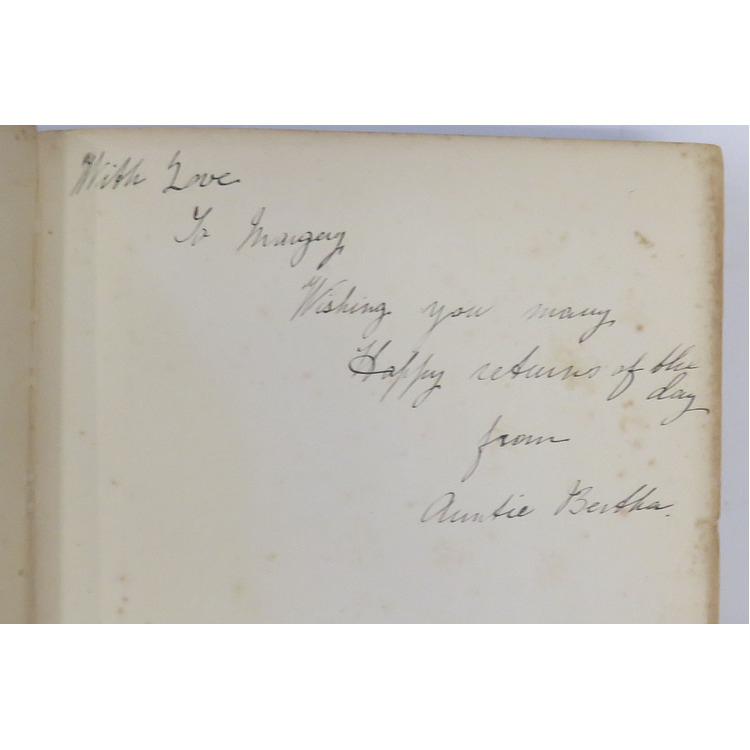 With Love
To Margery
Wishing you many
Happy returns of the
day
from
Auntie Bertha.